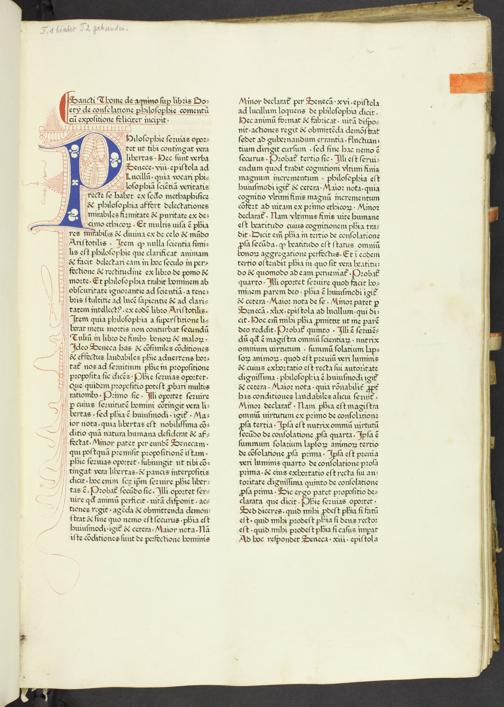 Sancti Thome de aquino sup libris Bo-
ecij de consolatione philosophie comentū
cū expositione feliciter incipit.
Philosophie seruias opor-
tet ut tibi contingat vera
libertas. Hec sunt verba
Senece. viii. epistola ad
Lucillū. quia vocari phi-
losophia scientia veritatis
recte se habet ex scdo methaphisice
& philosophia affert delectationes
mirabiles firmitate & puritate ex de-
cimo ethicor. Et multis visa ē phia
res mirabilis & diuina ex de celo & mūdo
Aristotilis. Item qz nulla scientia simi-
lis est philosophie que clarificat animam
& facit delectari eam in hoc seculo in per-
fectione & rectitudine ex libro de pomo &
morte. Et philosophia trahit hominem ab
obscuritate ignorantie ad scientiā. a tene-
bris stultitie ad lucē sapientie & ad clari-
tatem intellectꝰ. ex eodē libro Aristotilis.
Item quia philosophia a superstitione li-
berat metu mortis non conturbat secundū
Tuliū in libro de finibꝰ bonor & malor.
Ideo Seneca has & cōsimiles cōditiones
& effectus laudabiles phie aduertens hor-
tatˀ nos ad seruitium phie in propositione
proposita sic dicēs. Phie seruias oportet.
Que quidem propositio potest pbari multis
rationibꝰ. Primo sic. Illi oportet seruire
p cuius seruitutē homini cotingit vera li-
bertas. sed phia ē huiusmodi. igitˀ. Ma-
ior nota. quia libertas est nobilissima cō-
ditio quā natura humana desiderat & af-
fectat. Minor patet per eundē Senecam.
qui postquā premisit propositionē istam.
phie seruias oportet. subiungit ut tibi cō-
tingat vera libertas. & paucis interpositis
dicit. hoc enim seip̄m seruire phie liber-
tas ē. Probatˀ secūdo sic. Illi oportet ser-
uire qd animū perficit. uitā disponit. ac-
tiones regit. agēda & obmittenda demon-
strat & sine quo nemo est securus. phia est
huiusmodi. igitˀ & cetera. Maior nota. Nā
iste cōditiones sunt de perfectione hominis
Minor declaratˀ per Seneca. xvi. epistola
ad lucillum loquens de philosophia dicit.
Hec animū format & fabricat. uitā dispo-
nit. actiones regit & obmittēda demōstrat
sedet ad gubernandum errantia. fluctuan-
tium dirigit cursum. sed sine hac nemo ē
securus. Probatˀ tertio sic. Illi est serui-
endum quod tradit cognitiom vltim finis
magnum incrementum. philosophia est
huiusmodi igitˀ & cetera. Maior nota. quia
cognitio vltimi finis magnū incrementum
cōfert ad uitam ex primo ethicor. Minor
declaratˀ. Nam vltimus finis uite humane
est beatitudo cuius cognitionem phia tra-
dit. Dicit em phia in tertio de consolatione
psa secūda. qz beatitudo est status omniū
bonorz aggregatione perfectus. Et i eodem
tertio ostendit phia in quo sit vera beatitu-
do & quomodo ad eam peruenitˀ. Probatˀ
quarto. Illi oportet seruire quod facit ho-
minem parem deo. phia ē huiusmodi igitˀ
& cetera. Maior nota de se. Minor patet p
Seneca. xlix. epistola ad lucillum. qui di-
cit. Hoc em mihi phia pmittit ut me parē
deo reddit. Probatˀ quinto. Illi ē seruiē-
dū qd ē magistra omniū scientiarz. nutrix
omnium uirtutum. summū solatium lap-
sorz animorz. quod est preuiū veri luminis
& cuius exhortatio est recta sui autoritate
dignissima. philosophia ē huiusmodi igitˀ
& cetera. Maior nota. quia rōnabile est ppt
has conditiones laudabiles alicui seruire.
Minor declaratˀ. Nam phia est magistra
omniū uirtutum ex primo de consolatione
psa tertia. Ipsa est nutrix omniū uirtutū
secūdo de consolatione psa quarta. Ipsa ē
summum solatium laplorz animorz tertio
de cōsolatione psa prima. Ipsa est preuia
veri luminis quarto de consolatione prosa
prima. & eius exhortatio est recta sui au-
toritate dignissima quinto de consolatione
psa prima. Sic ergo patet propositio de-
clarata que dicit. Phie seruias oportet.
Sed diceres. quid mihi pdest phia si fatū
est. quid mihi prodest phia si deus rector
est. quid mihi prodest phia si casus impat
Ad hoc respondet Seneca. xiii. epistola